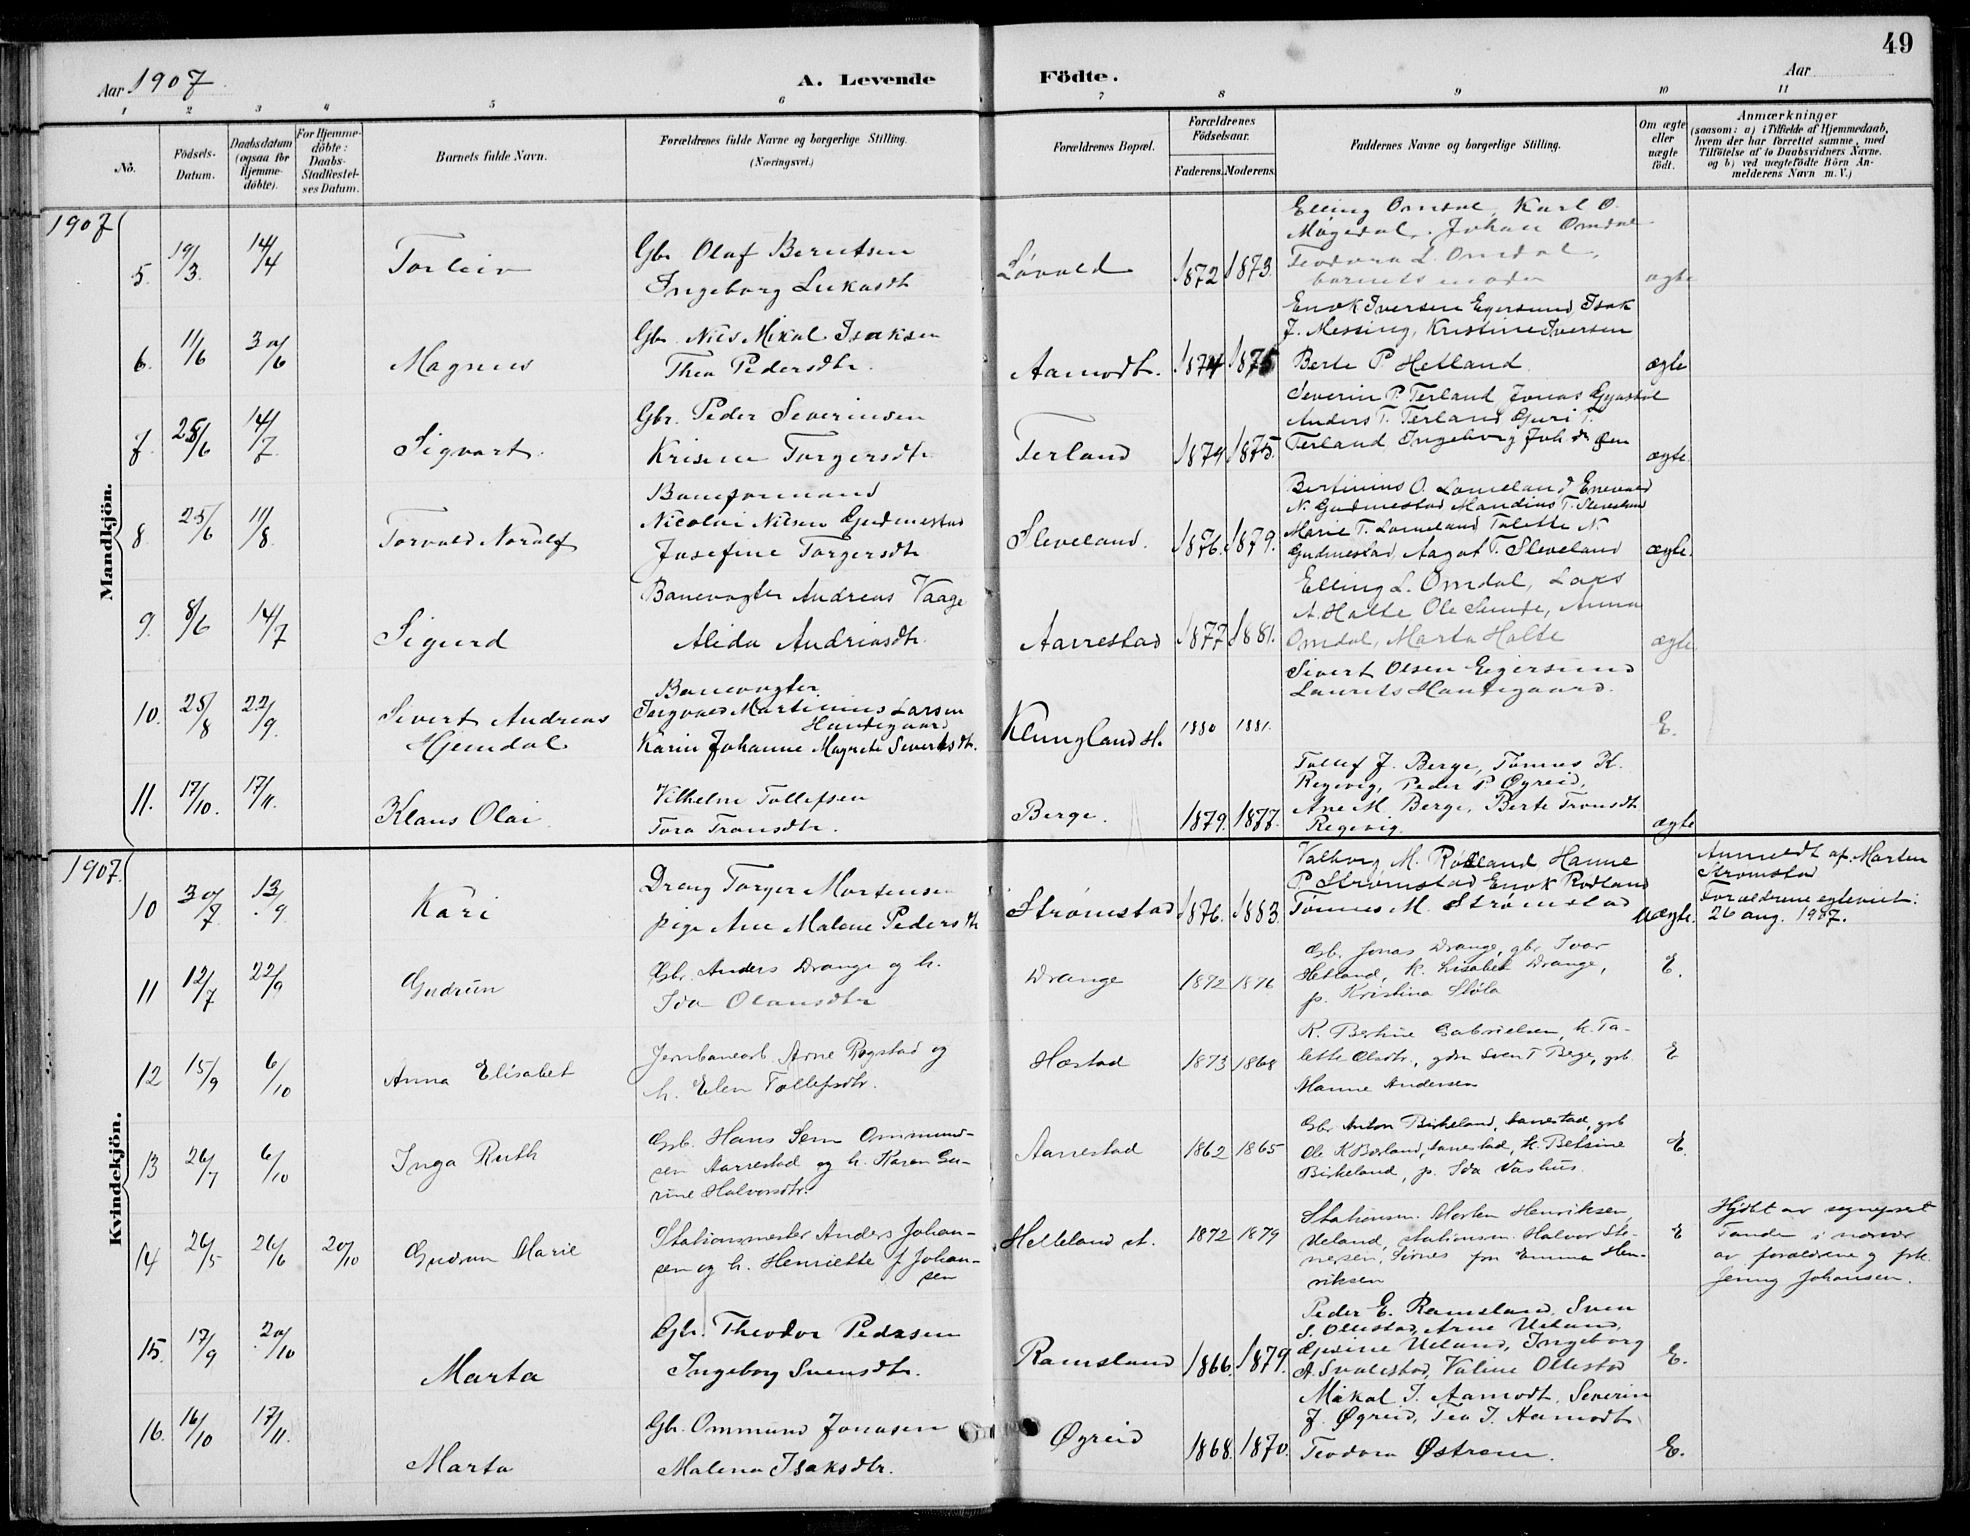 49
Aar 1907
A. Levende Födte.
Aar
1 2 3 4 5 6 7 8 9 10 11
No.
Födsels-Datum.
Daabsdatum (ogsaa for Hjemme-döbte).
For Hjemme-döbte: Daabs-Stadfæstel-ses Datum.
Barnets fulde Navn.
Forældrenes fulde Navne og borgerlige Stilling. (Næringsvei.)
Forældrenes Bopæl.
Forældrenes Födselsaar.
Faderens. Moderens.
Faddernes Navne og borgerlige Stilling.
Om ægte eller uægte födt.
Anmærkninger
(saasom: a) i Tilfælde af Hjemmedaab, hvem der har forrettet samme, med Tilföielse af to Daabsvidners Navne. og b) ved uægtefödte Börn An-melderens Navn m. V.)
Mandkjön.
1907
5. 19/3. 14/4 Torleiv
Gbr Olaf Berntsen
Ingeborg Lukasdtr
Lóvold 1872 1873.
Elling Omdal, Karl O.
Møgedal, Johan Omdal
Teodora L. Omdal,
barnets moder
ægte
6. 11/6 30/6 Magnus
Gbr. Nils Mikal Isaksen
Thea Pedersdtr.
Aamodt. 1874 1875
Enok Iversen Egersund Isak
J. Messing, Kristine Iversen
Berte P. Hetland
ægte
7. 25/6 14/7 Sigvart.
Gbr. Peder Severinsen
Torgersdtr
Terland 1879 1875.
Severin P. Terland Jonas
Anders T. Terland Guri T.
Terland Ingeborg
ægte.
8 25/6 11/8. Torvald Noralf
Baneformand
Nicolai Nilsen Gudmestad
Josefine Torgersdtr
Sleveland. 1876. 1879.
Bertinius O. Lomeland Enevald
N. Gudmestad Mandius T. Sleveland
Marie T. Lomeland Talette N.
Gudmestad, Aagot T. Sleveland
ægte.
9. 8/6 14/7 Sigurd
Banevogter Andreas Vaage
Alida Andreasdtr.
Aarrestad 1877 1881.
Elling L. Omdal, Lars
A. Halte Ole Sunde, Anna
Omdal, Marta Halte
ægte
10. 25/8 22/9. Sivert Andreas
Hjemdal
Banevogter
Ingvald Martinius Larsen
Haudegaard
Karin Johanne Magrete Sivertsdtr.
Klungland st. 1880 1881.
Sivert Olsen Egersund
Laurits Haudegaard.
E.
11. 17/10. 17/11. Klaus Olai
Vilhelm Tollefsen
Tora Tronsdtr.
Berge. 1879. 1877.
Tollef J. Berge, Tønnes K.
Regevig, Peder P. Øgreid,
Ane M. Berge, Berte Tronsdtr
Regevig.
ægte
Kvindekjön.
1907.
10 30/7. 13/9. Kari
Dreng Torger Mortensen
pige Ane Malene Pedersdtr
Strømstad 1876. 1883.
Valborg M. Rødland Hanne
P. Strømstad Enok Rødland
Tønnes M. Strømstad
Uægte.
Anmeldt af Morten
Strømstad
Forældrene egteviet:
26 aug. 1907.
11 12/7 22/9 Gudrun
Gbr. Anders Drange og h.
Ida Olausdtr
Drange 1872 1876
Gb. Jonas Drange, gbr. Ivar
Hetland, k. Lisabet Drange,
p. Kristina Støla
E.
12 15/9 6/10 Anna Elisabet
Jernbanearb. Arne Rogstad og
h. Elen Tollefsdtr.
Hæstad 1873 1868
K. Bertine Gabrielsen, k. Ta-
lette Olsdtr., gdm Sven T Berge, gbr.
Manne Andersen
E
13 26/7 6/10 Inga Ruth
Gbr. Hans Sem Ommund-
sen Aarrestad og h. Karen Gu-
rine Halvorsdtr.
Aarrestad 1862 1865
Gbr Anton Birkeland, Aarrestad, gbr
Ole K Børland, Aarrestad, k. Betsine
Birkeland, p. Ida Vashus.
E.
14 26/5 26/6 20/10 Gudrun Marie
Stationsmester Anders Johan-
sen og h. Henriette f. Johan-
sen
Helleland st. 1872 1879
Stationsm. Morten Henriksen,
Ueland, stationsm. Halvor Ste-
nersen, Sirnes frn Emma Hen-
riksen
E
Hjdbt av sognepræst
Tande i nærvær
av foræeldrene og frk.
Jenny Johansen.
15. 17/9 20/10 Marta
Gbr. Theodor Pedersen
Ingeborg Svensdtr.
Ramsland 1866. 1879.
Peder E. Ramsland, Sven
S. Ollestad, Arne Ueland,
Gjesine Ueland, Ingeborg
A. Svalestad, Valine Ollestad
E.
16. 16/10 17/11. Marta
Gbr. Ommund Jonasen
Malena Isaksdtr.
Øgreid 1868. 1870.
Mikal I. Aamodt, Severin
J. Øgreid, Tea I. Aamodt
Teodora Østrem.
E.